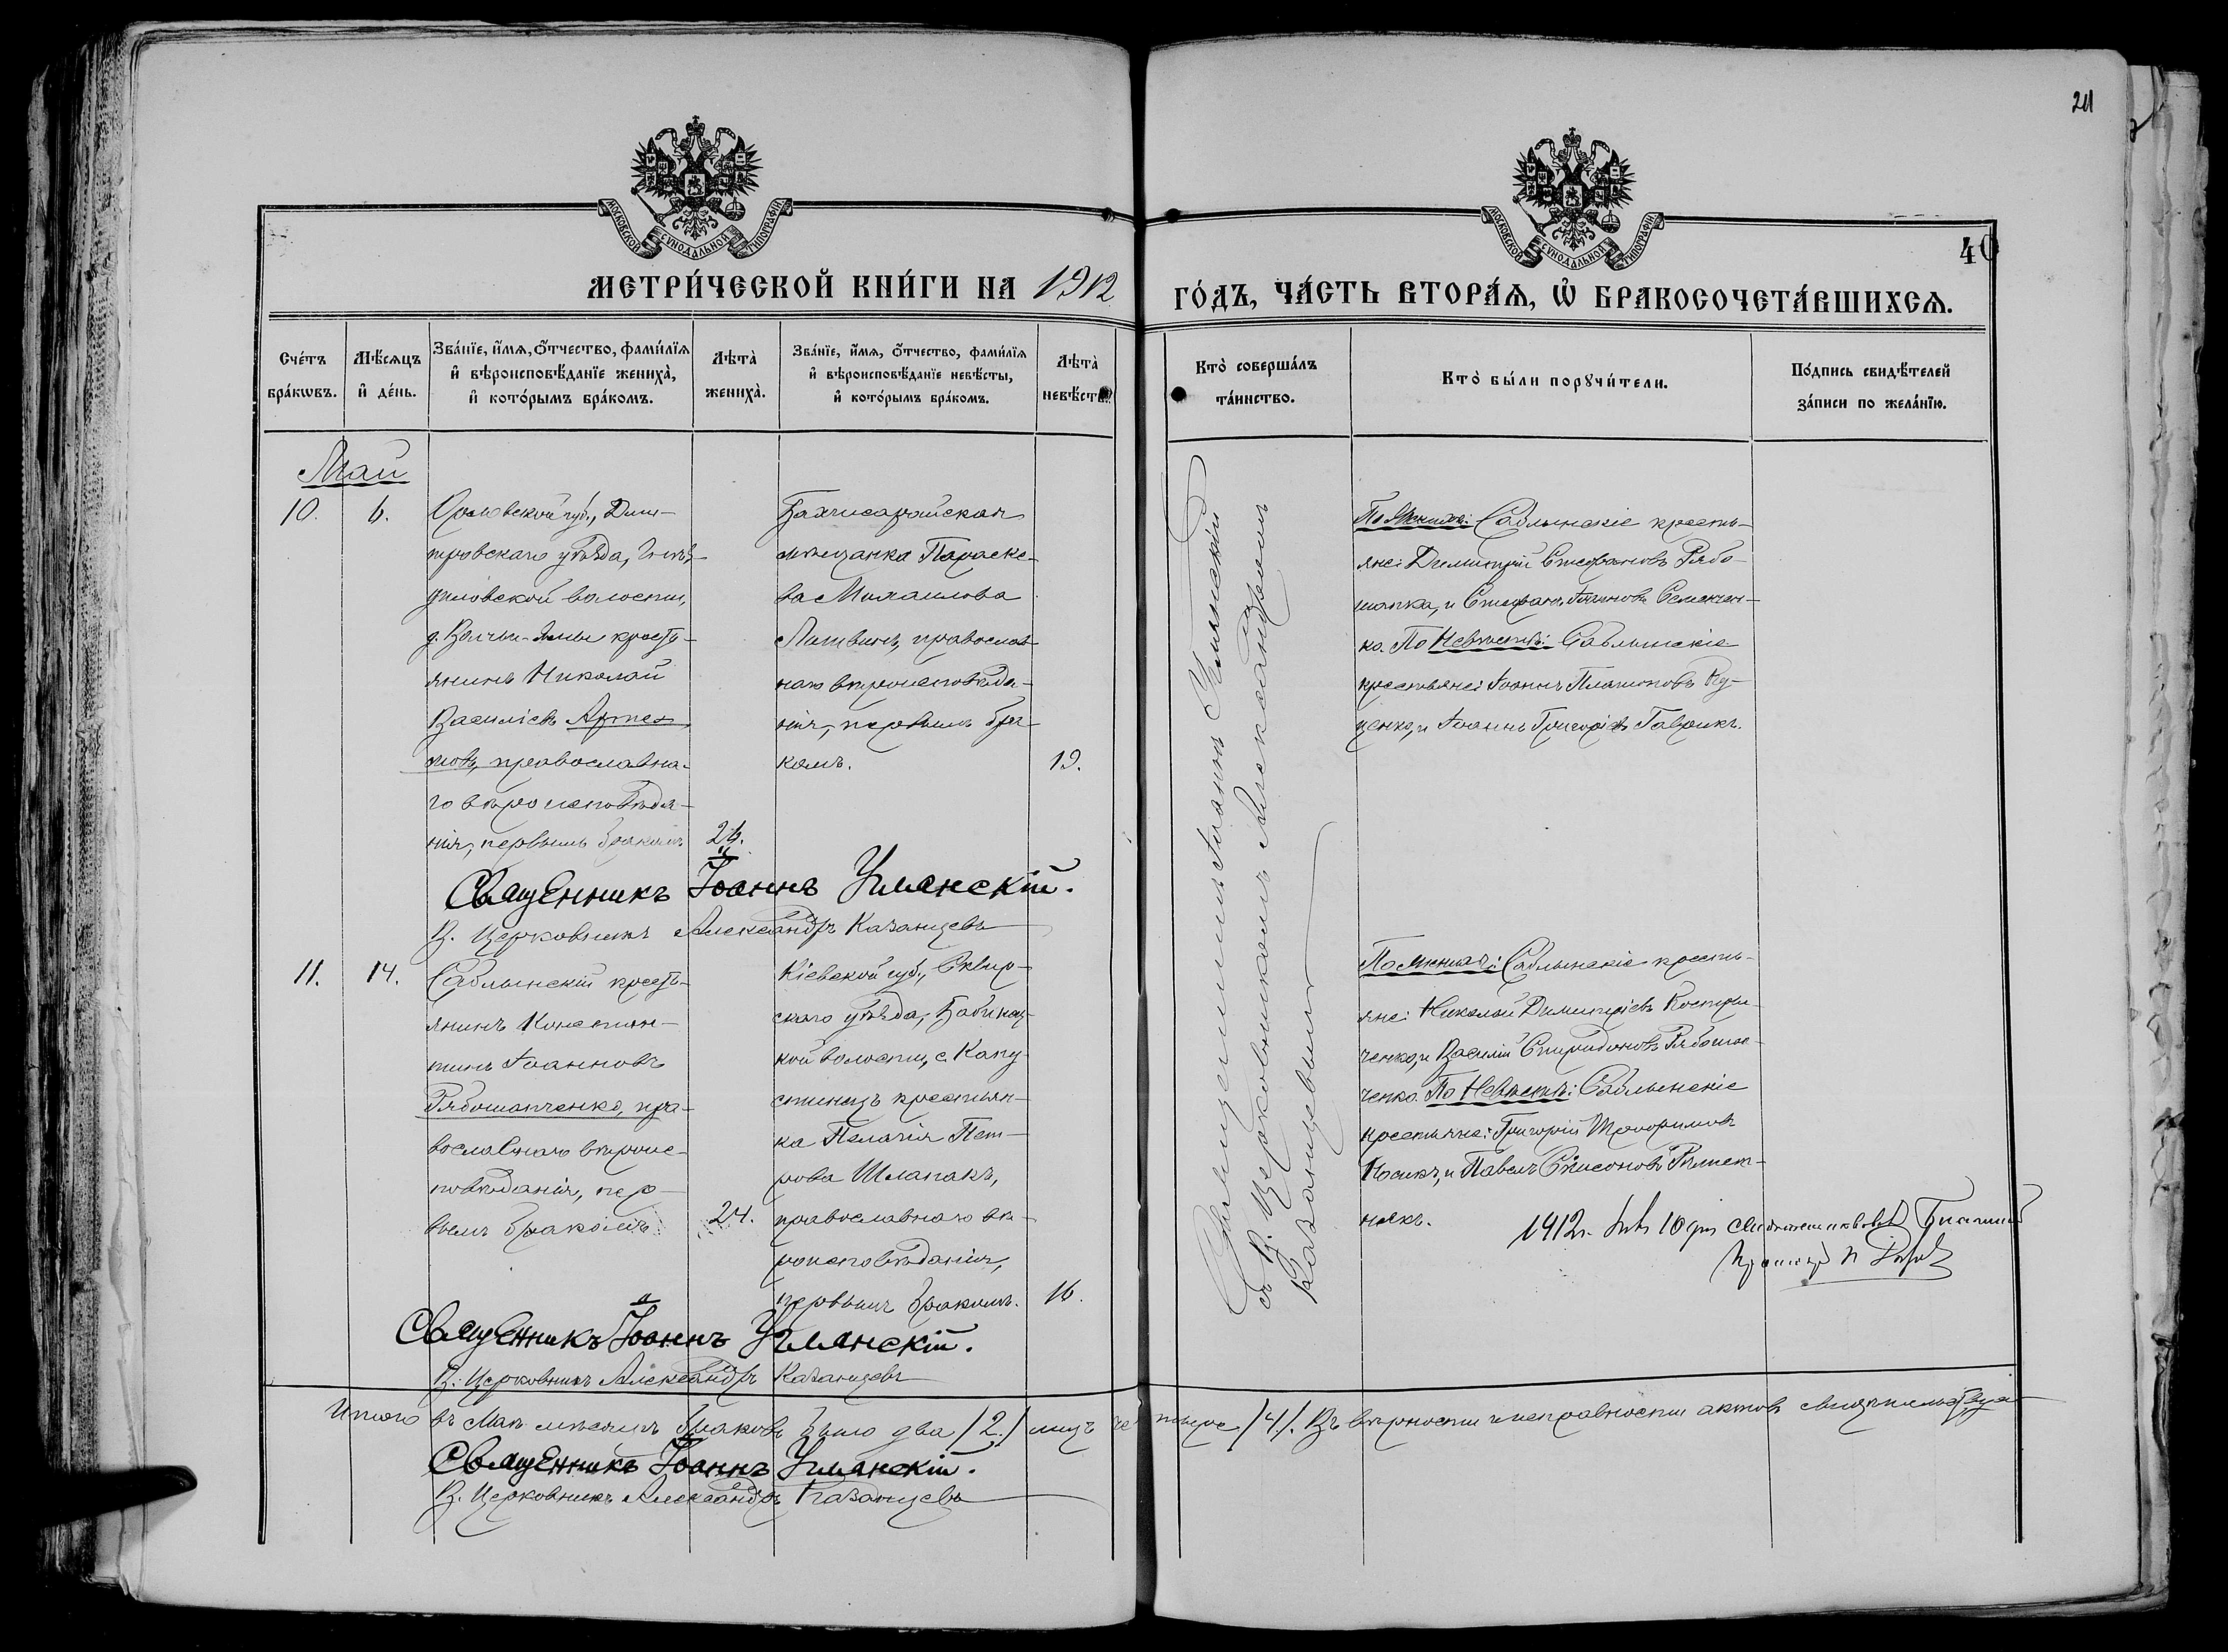 211
МОСКОВСКОЙ СѴНОДАЛЬНОЙ ТИПОГРАФІИ
МОСКОВСКОЙ СѴНОДАЛЬНОЙ ТИПОГРАФІИ
40
МЕТРИ́ЧЕСКОЙ КНИ́ГИ НА 1912
ГО́ДЪ, ЧА́СТЬ ВТОРА́Ѧ, Ѡ҆ БРАКОСОЧЕТА́ВШИХСѦ.
Сче́тъ
бра́кѡвъ.
Мѣ́сѧцъ
и҆ де́нь.
Зва́нїе, и҆́мѧ, ѻ҆́тчество, фами́лїѧ
и҆ вѣроисповѣ́данїе жениха̀,
и҆ кото́рымъ бра́комъ.
Лѣта̀
жениха̀.
Зва́нїе, и҆́мѧ, ѻ҆́тчество, фами́лїѧ
и҆ вѣроисповѣ́данїе невѣ́сты,
и҆ кото́рымъ бра́комъ.
Лѣта̀
невѣ́сты.
Кто̀ соверша́лъ
та́инство.
Кто̀ бы́ли порꙋчи́тели.
По́дпись свидѣ́телей
за́писи по жела́нїю.
Май
10.
6.
Орловской губ., Дми-
тровскаго уѣзда,
волости,
д. Волчьи-Ямы кресть-
янинъ Николай
Василіевъ Артем
овъ, православна-
го вѣроисповѣда-
нія, первымъ бракомъ
26.
Бахчисарайская
мѣщанка Параске-
ва Михаилова
Литвинъ, православ-
наго вѣроисповѣда-
нія, первымъ бра-
комъ.
19.
Священникъ Іоаннъ Уманскій.
В. Церковникъ Александръ Казанцевъ
Священникомъ Іоанномъ Уманскимъ
съ В. Церковникомъ Александромъ
Казанцевымъ
По Женихѣ: Саблынскіе кресть-
яне: Димитрій Стефановъ Рябо-
шапка, и Стефанъ Іоанновъ Семенчен-
ко. По Невѣстѣ: Саблынскіе
крестьяне: Іоаннъ Платоновъ Ку-
ценко, и Іоаннъ Григоріевъ Гаврикъ.
11.
14.
Саблынскій кресть-
янинъ Констан-
тинъ Іоанновъ
Рябошапченко, пра-
вославнаго вѣроис-
повѣданія, пер-
вымъ бракомъ.
24.
Кіевской губ., Сквир-
скаго уѣзда,
кой волости, с. Капу-
стинецъ крестьян-
ка Пелагія Пет-
рова Шлапакъ,
православнаго вѣ-
роисповѣданія,
первымъ бракомъ.
16.
По Женихѣ: Саблынскіе кресть-
яне: Николай Димитріевъ Костри-
ченко, и Василій Спиридоновъ
ченко. По Невѣстѣ: Саблынскіе
крестьяне: Григорій Трофимовъ
Носикъ, и Павелъ
някъ.
1912 г. 10 дня свидѣтельствовалъ
Священникъ Іоаннъ Уманскій.
В. Церковникъ Александръ Казанцевъ
Итого въ Маѣ мѣсяцѣ браковъ было два /2/ лицъ че тыре /4/. Въ вѣрности и исправности актовъ свидѣтельствуемъ
Священникъ Іоаннъ Уманскій.
В. Церковникъ Александръ Казанцевъ